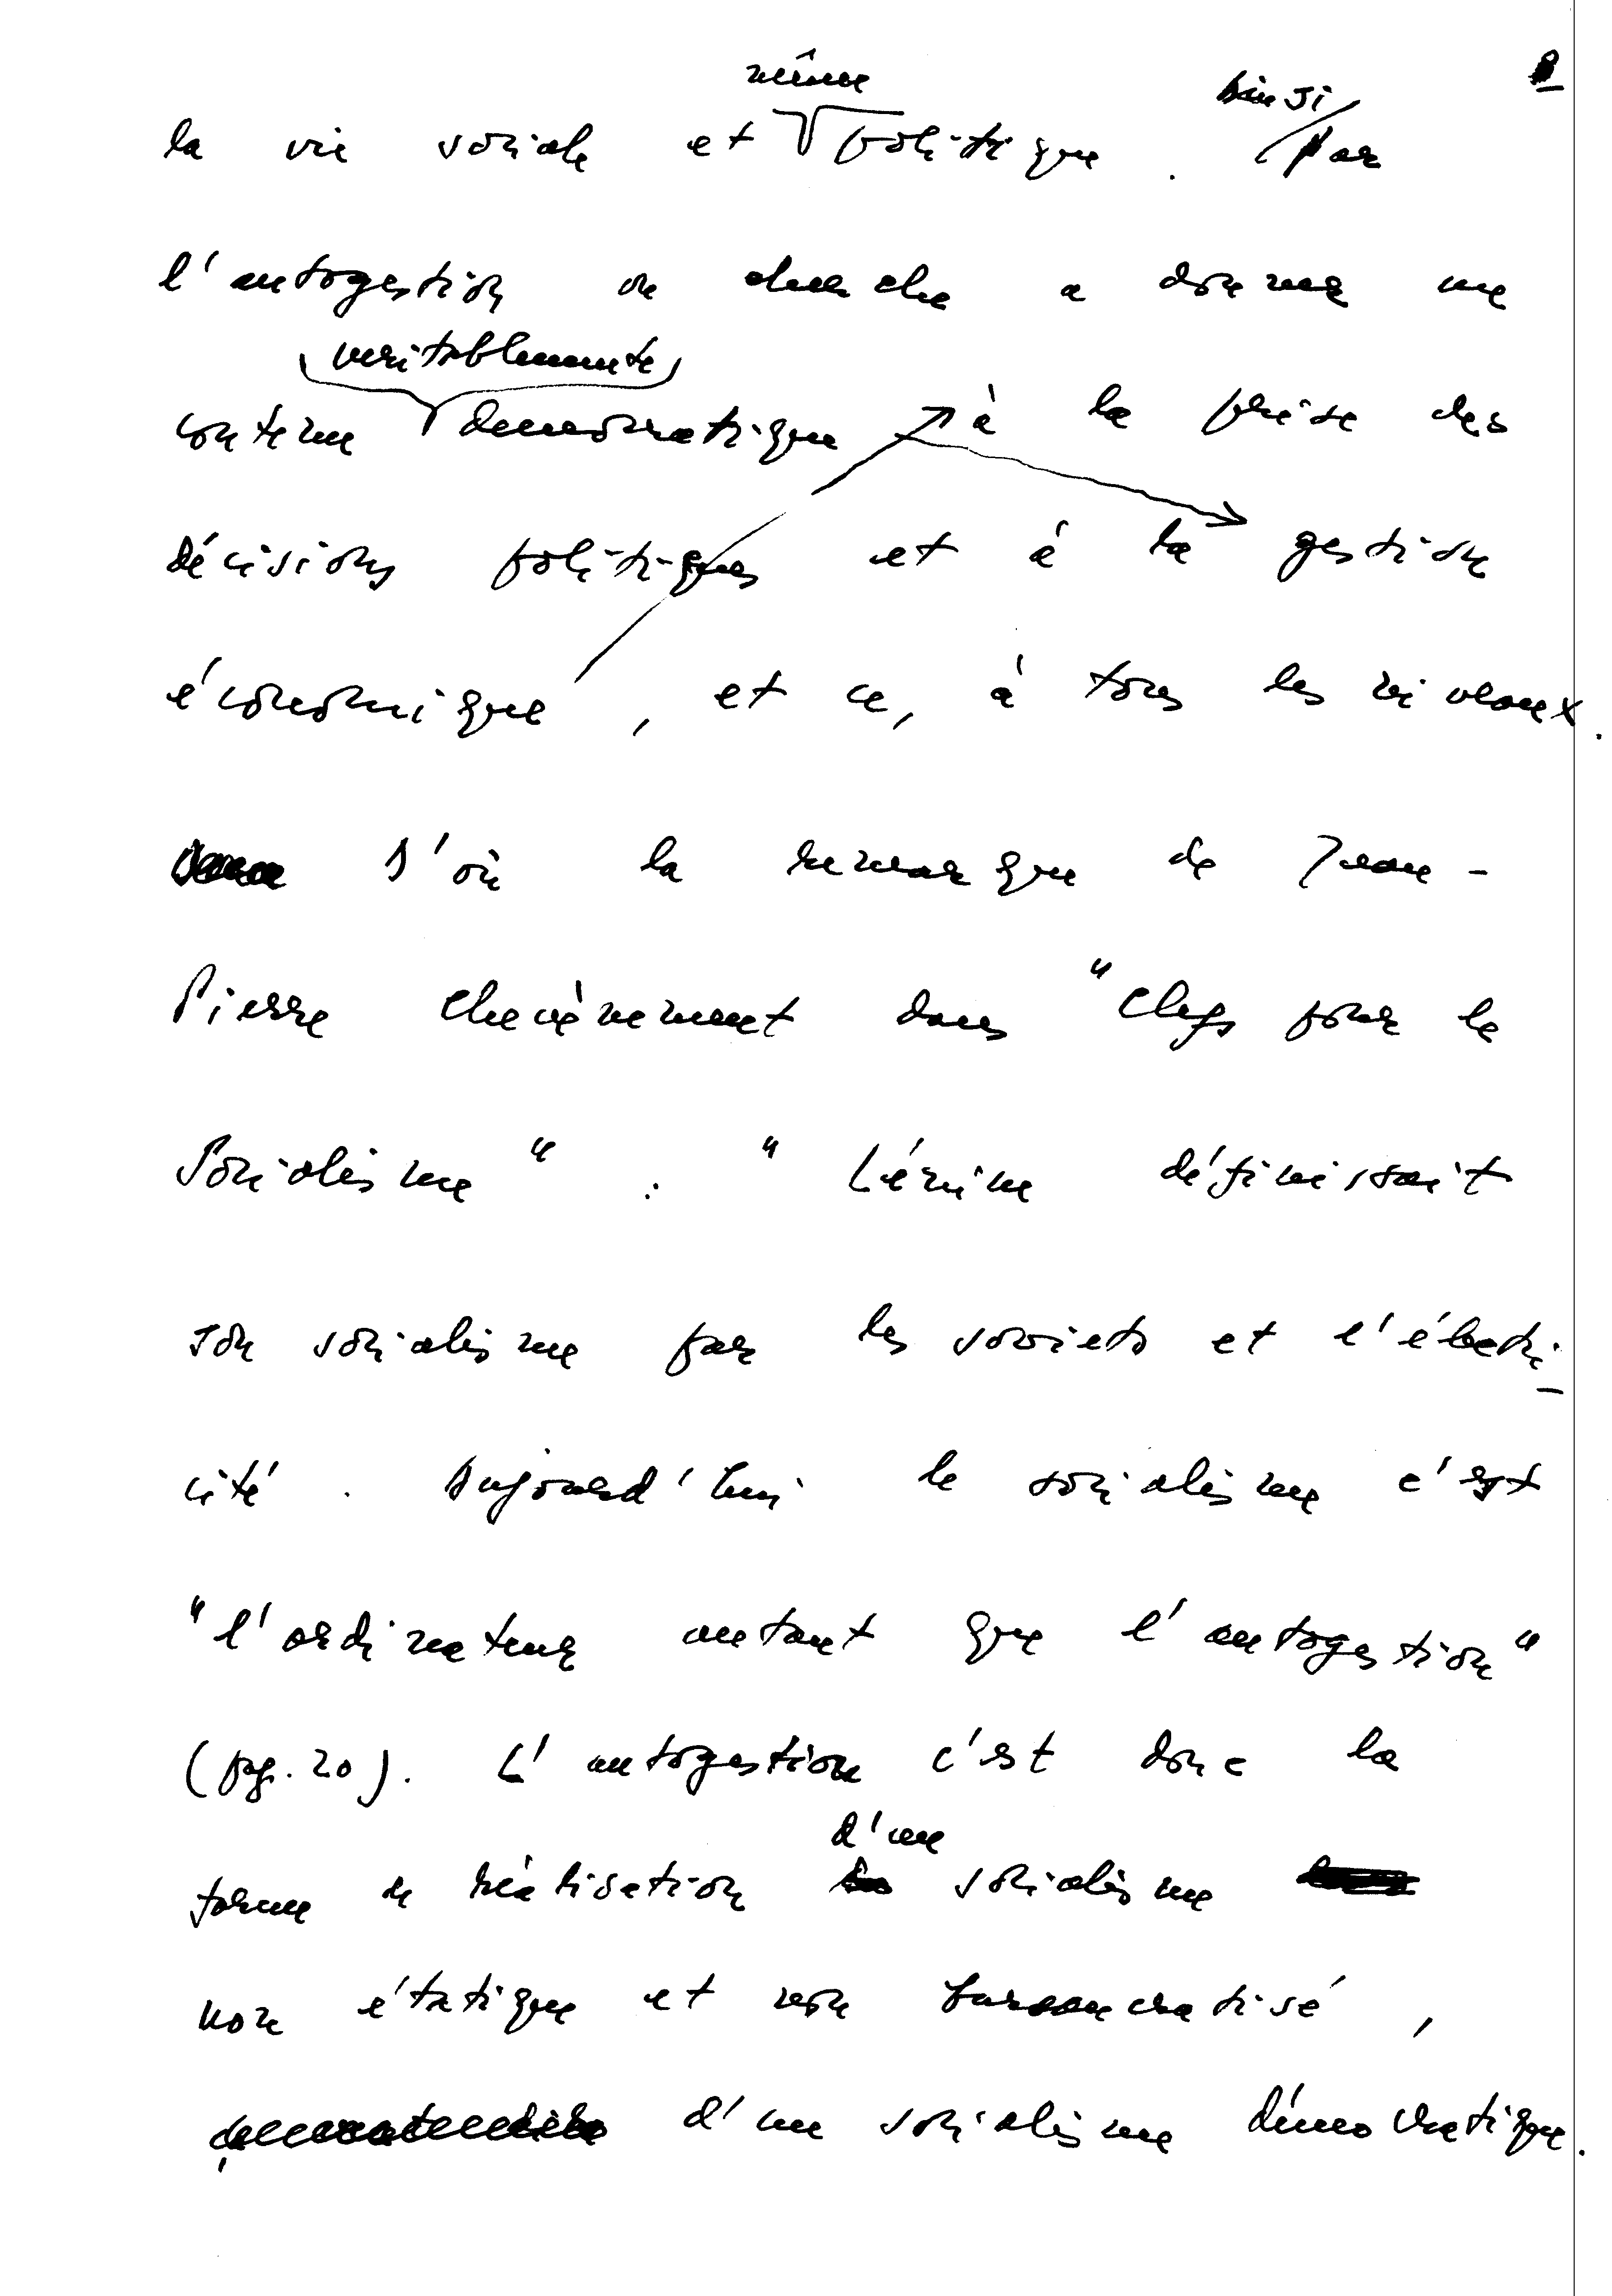 même
la vie sociale et politique. Par
l'autogestion on cherche a donner un
veritablement
contenu democratique à la prise des
décisions politiques et à la gestion
économique, et ce, à tous les niveaux.
D'où la remarque de Jean-
Pierre Chevènement dans "Clefs pour le
Socialisme" : "Lénine définissait
son socialisme par les soviets et l'électri-
cité. Aujourd'hui le socialisme c'est
"l'ordinateur autant que l'autogestion"
(pg. 20). L'autogestion c'est donc la
d'un
forme de réalisation socialisme
non étatique et non bureaucratisé,
d'un socialisme démocratique.